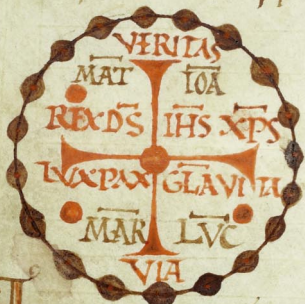 VERITAS
M̅A̅T̅ I̅O̅A̅
REX D̅S̅ I̅H̅S̅ X̅P̅S̅
LVX PAX GLA VITA
M̅A̅R̅ L̅V̅C̅
VIA